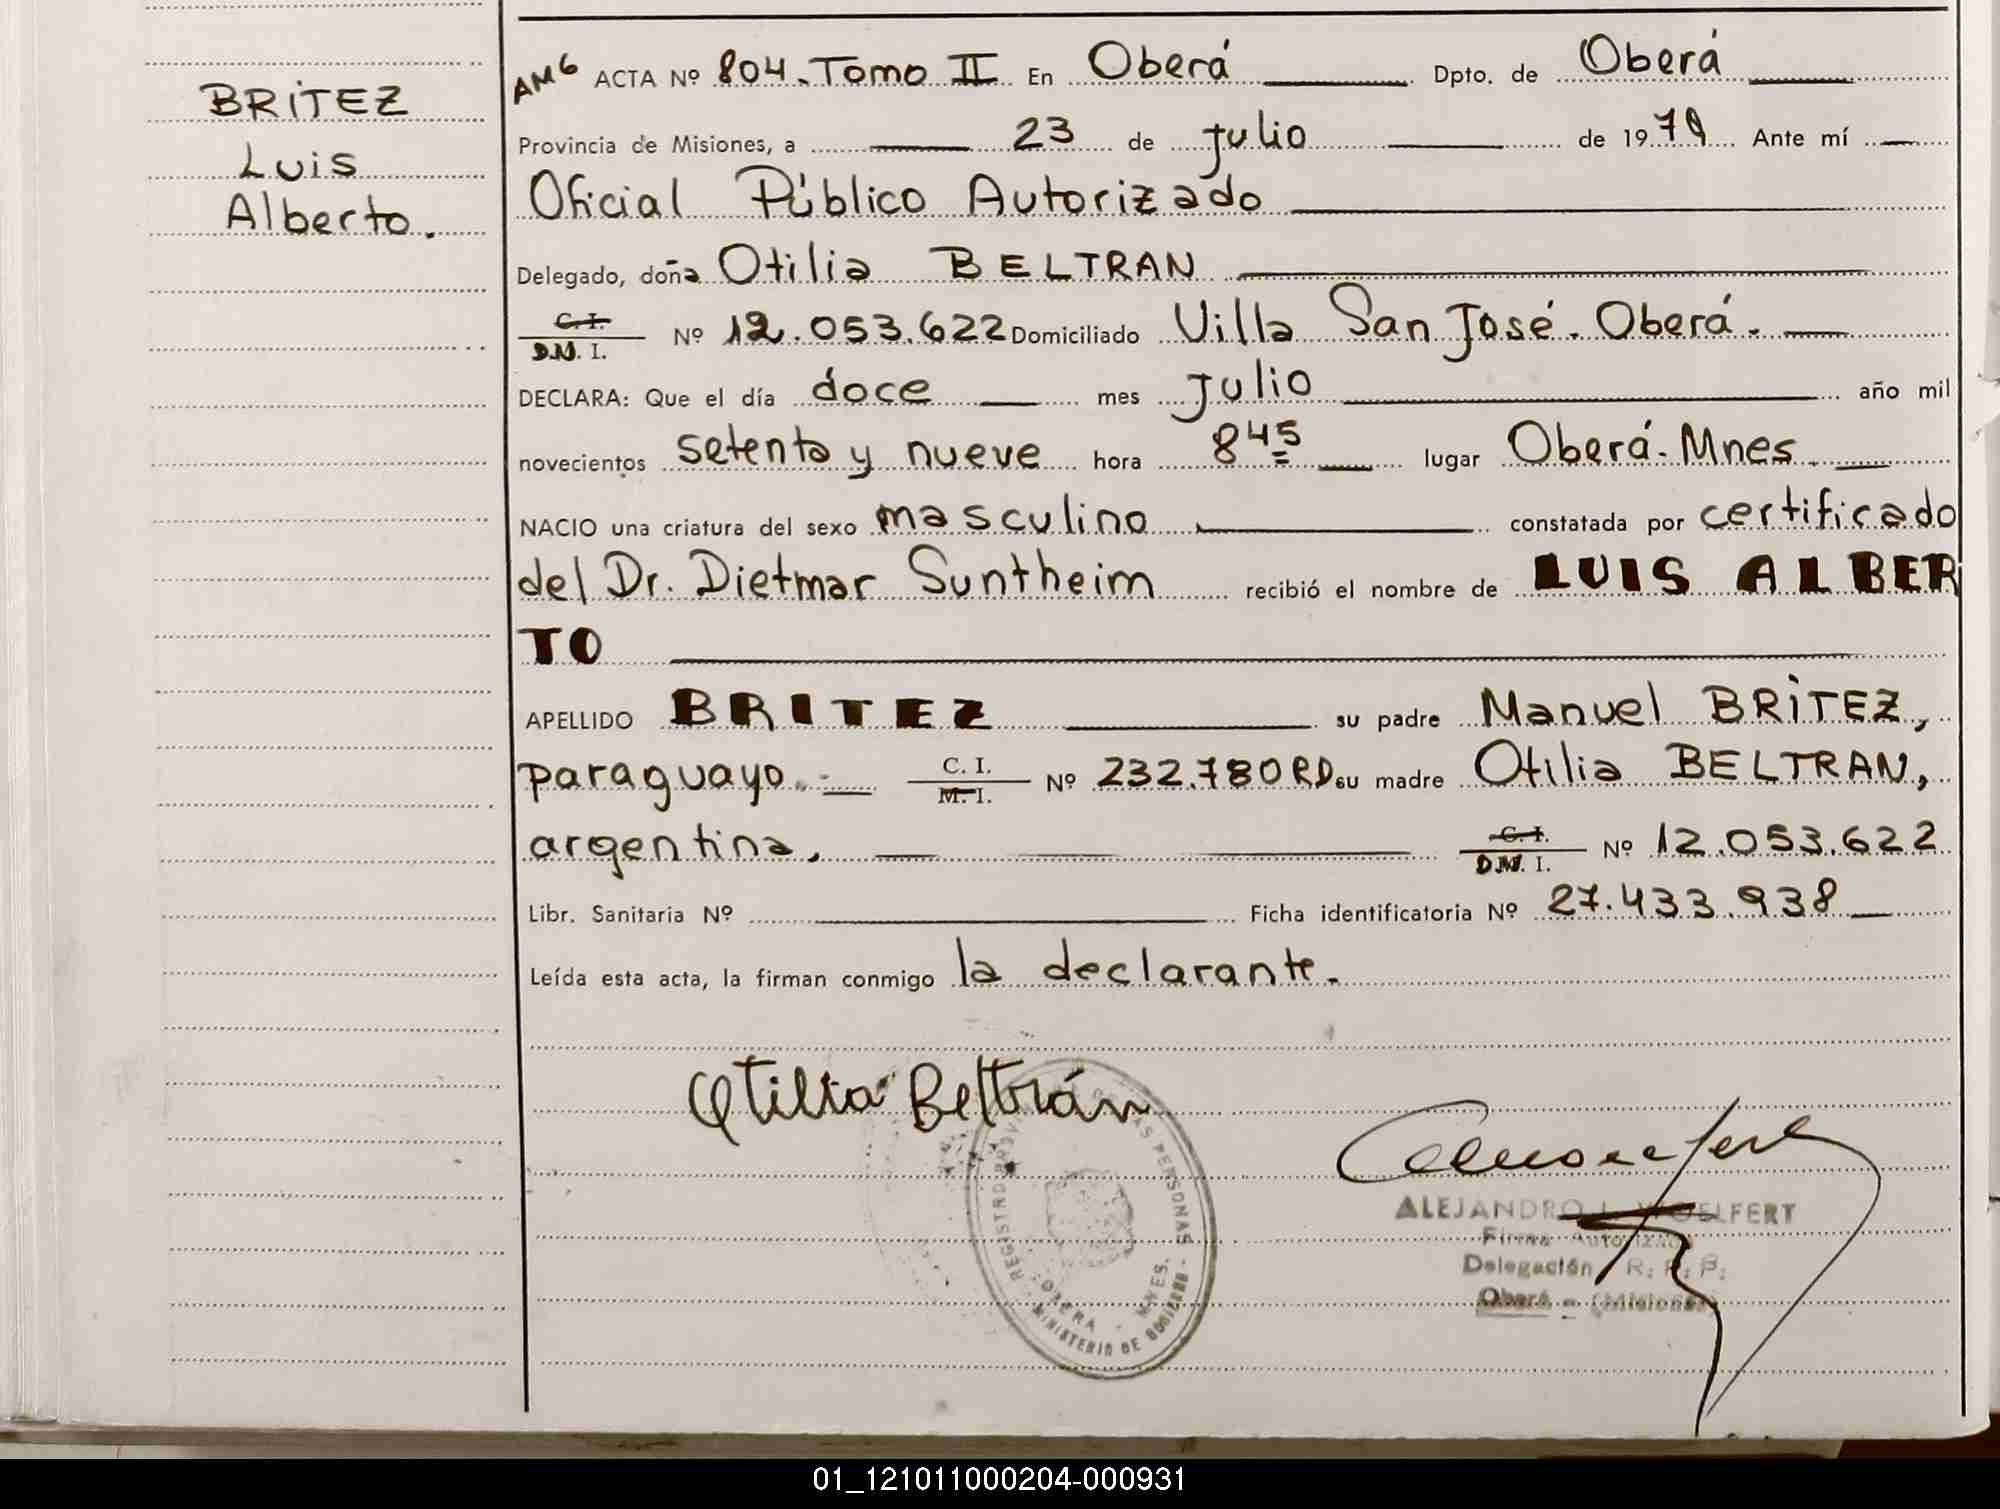 BRITEZ
Luis
Alberto.
AMG ACTA Nº 804. Tomo II En Oberá Dpto. de Oberá
Provincia de Misiones, a 23 de julio de 1979 Ante mí
Oficial Público Autorizado
Delegado, doña Otilia BELTRAN
C. I.
D.N. I. Nº 12.053.622 Domiciliado Villa San José. Oberá.
DECLARA: Que el día doce mes julio año mil
novecientos setenta y nueve hora 8 45 lugar Oberá-Mnes.
NACIO una criatura del sexo masculino constatada por certificado
del Dr. Dietmar Suntheim recibió el nombre de LUIS ALBER
TO
APELLIDO BRITEZ su padre Manuel BRITEZ,
paraguayo.- C. I.
M. I. Nº 232.780 RD su madre Otilia BELTRAN,
argentina, C. I.
D.N. I. Nº 12.053.622
Libr. Sanitaria Nº Ficha identificatoria Nº 27.433.938
Leída esta acta, la firman conmigo la declarante.
Otilia Beltrán
REGISTRO PROVINCIAL DE LAS PERSONAS
OBERA - MNES.
MINISTERIO DE GOBIERNO
ALEJANDRO L. WOELFERT
Firma Autorizada
Delegación R. P. P.
Oberá - (Misiones)
01_121011000204-000931